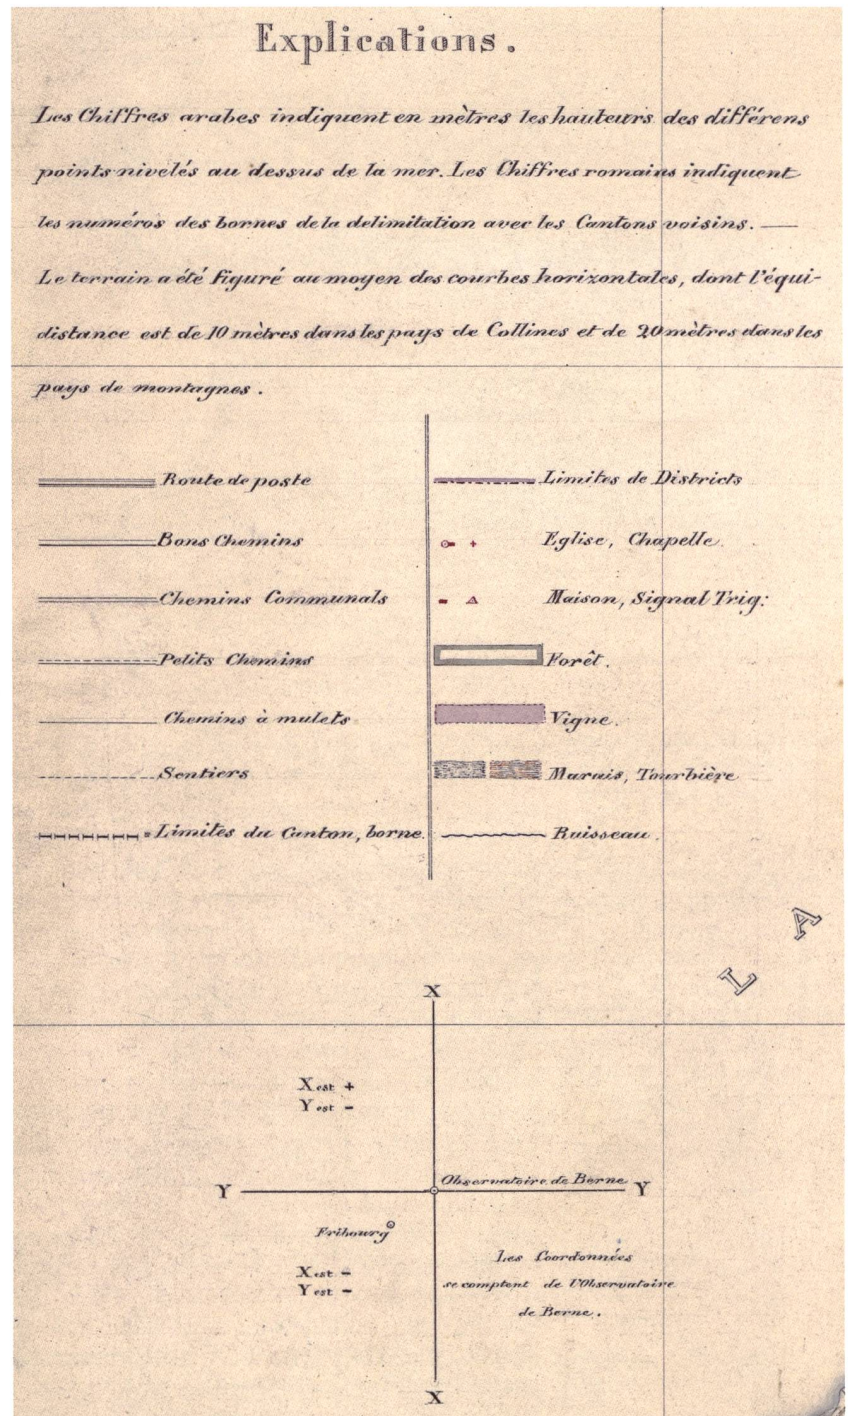 Explications.
Les Chiffres arabes indiquent en mètres les hauteurs des différens
points nivelés au dessus de la mer. Les Chiffres romains indiquent
les numéros des bornes de la delimitation avec les Cantons voisins. —
Le terrain a été figuré au moyen des courbes horizontales, dont l'équi-
distance est de 10 mètres dans les pays de Collines et de 20 mètres dans les
pays de montagnes.
Route de poste
Bons Chemins
Chemins Communals
Petits Chemins
Chemins à mulets
Sentiers
Limites du Canton, borne.
Limites de Districts
Eglise, Chapelle.
Maison, Signal Trig:
Forêt.
Vigne.
Marais, Tourbière
Ruisseau.
L A
X
X est +
Y est -
Observatoire de Berne
Y Y
Fribourg
X est -
Y est -
Les Coordonnées
se comptent de l'Observatoire
de Berne.
X